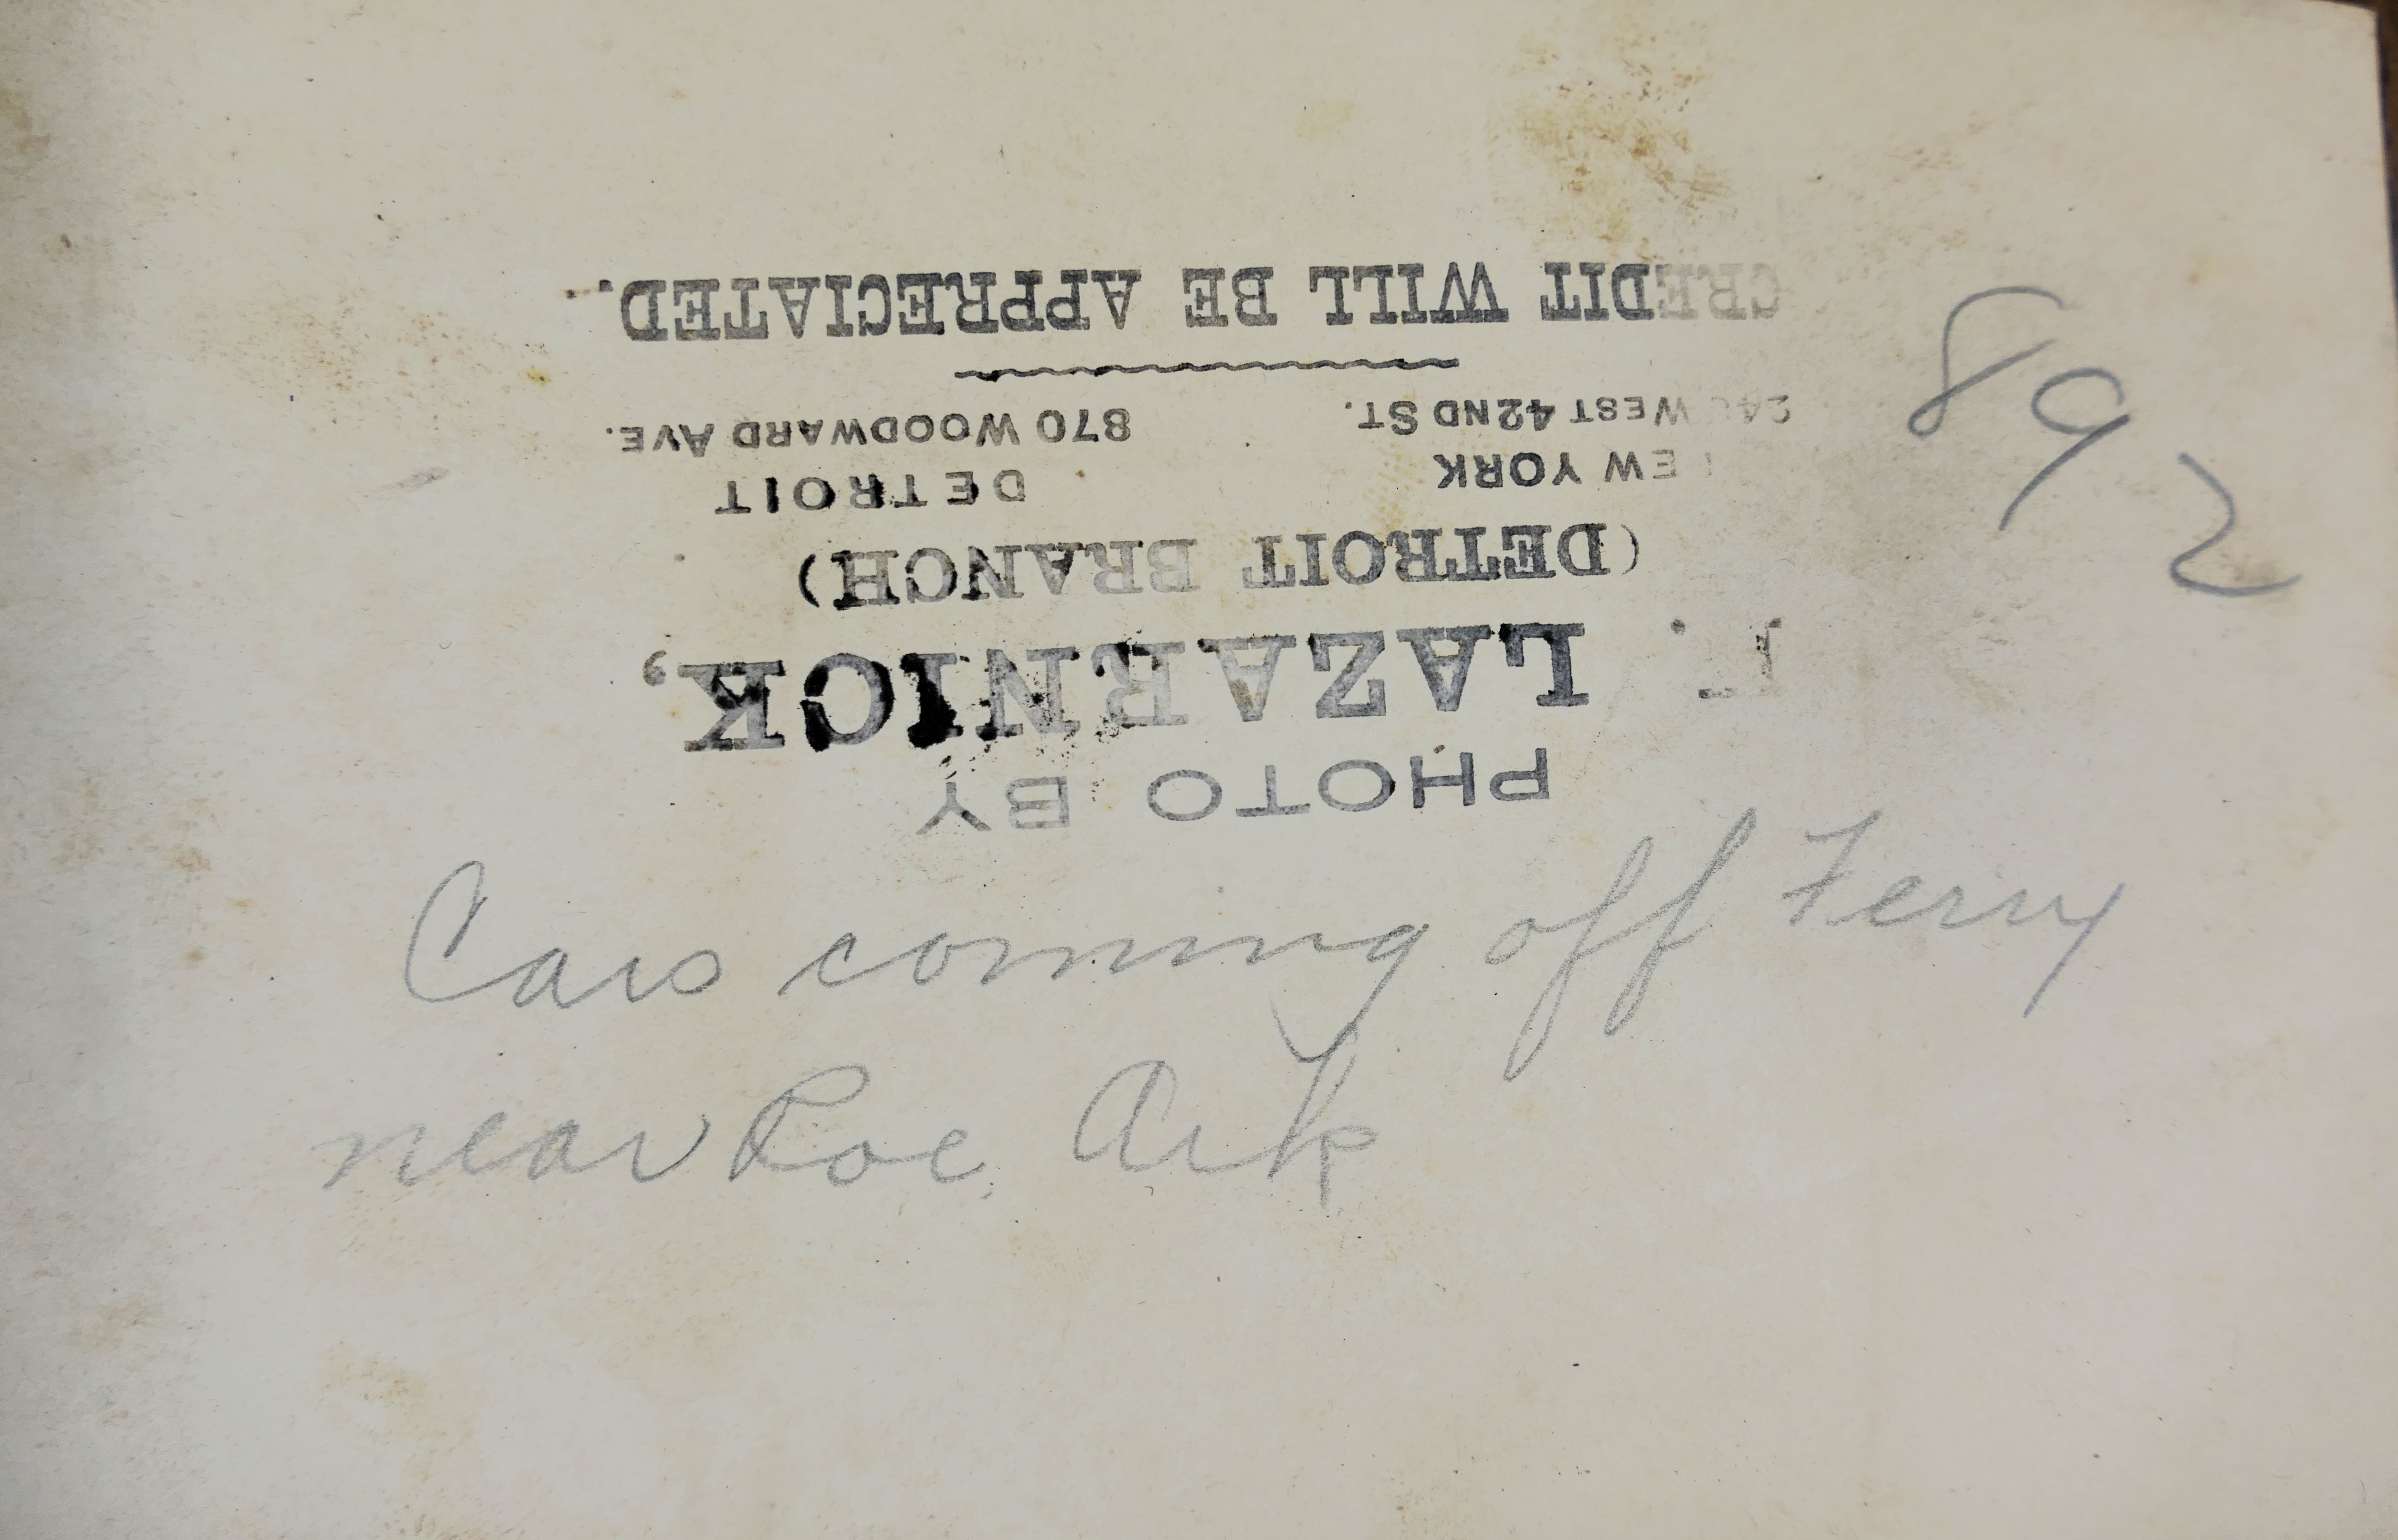 892
Cars coming off Ferry
near Roe, Ark
PHOTO BY
LAZARNICK,
(DETROIT BRANCH)
NEW YORK DETROIT
WEST 42ND ST. 870 WOODWARD AVE.
CREDIT WILL BE APPRECIATED.